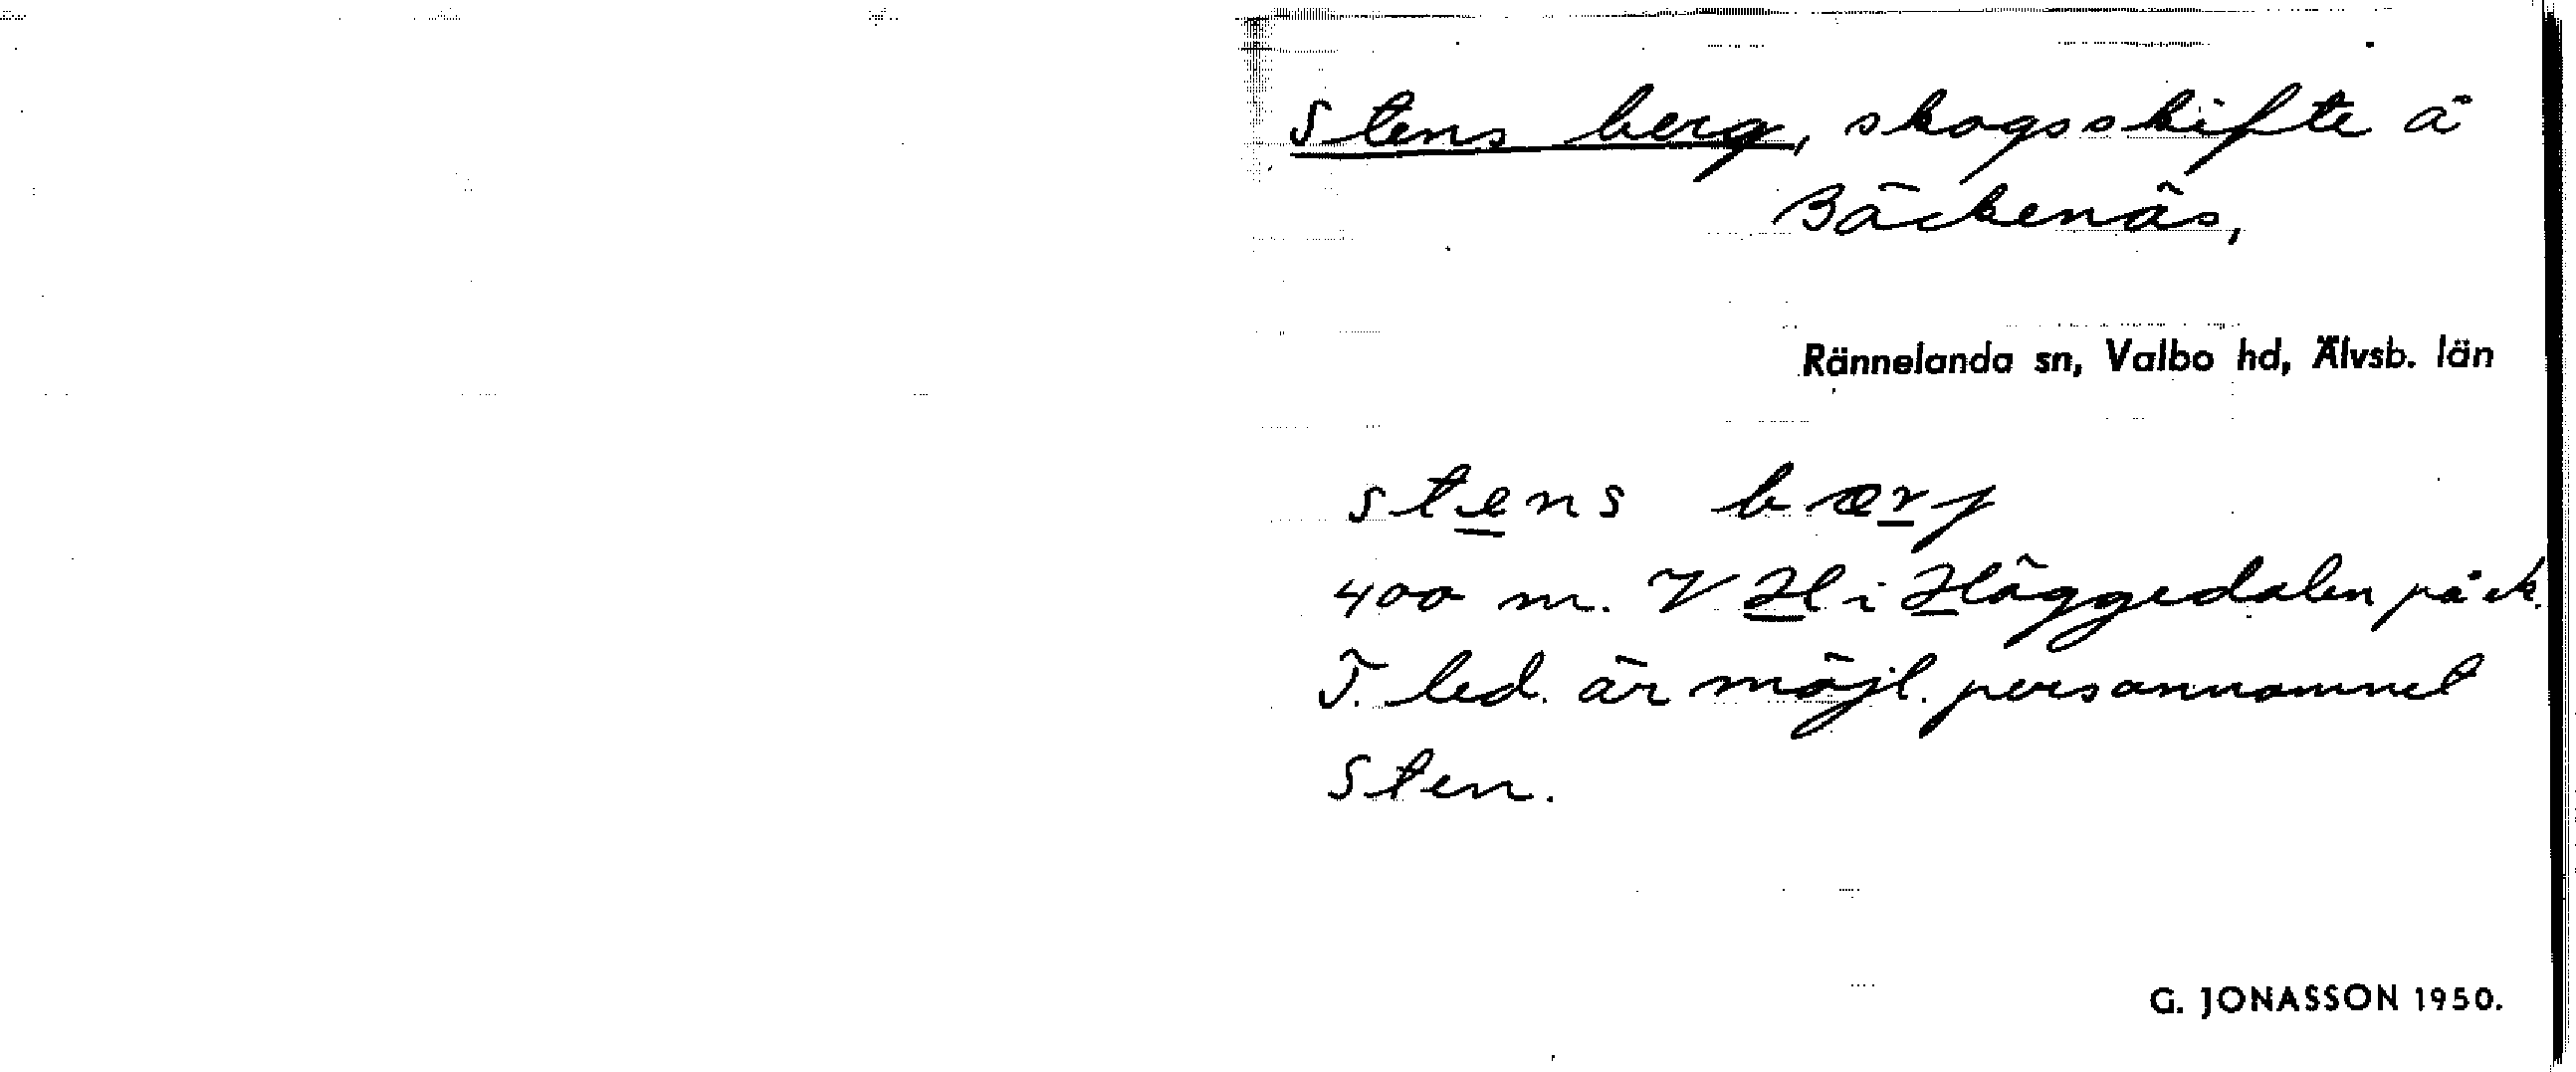 Stens berg, skogsskifte å
Bäckenäs,
Rännelanda sn, Valbo hd, Älvsb. län
stens bærj
400 m. V H i Häggedalen på ek.
F. led. är möjl. personnamnet
Sten.
G. JONASSON 1950.